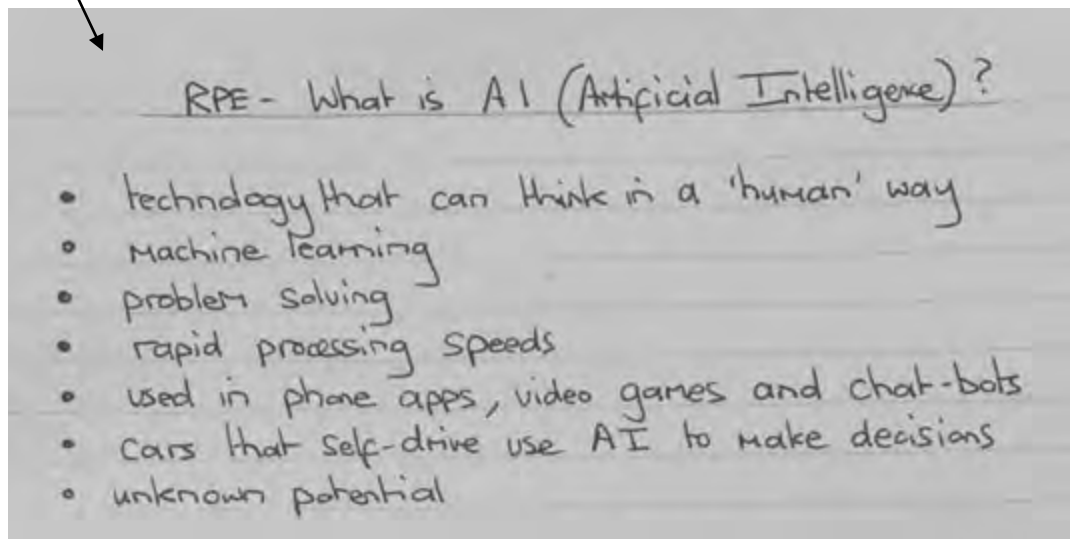 RPE - What is AI (Artificial Intelligence)?
• technology that can think in a 'human' way
• Machine learning
• problem solving
• rapid processing speeds
• used in phone apps, video games and chat-bots
• cars that self-drive use AI to make decisions
• unknown potential